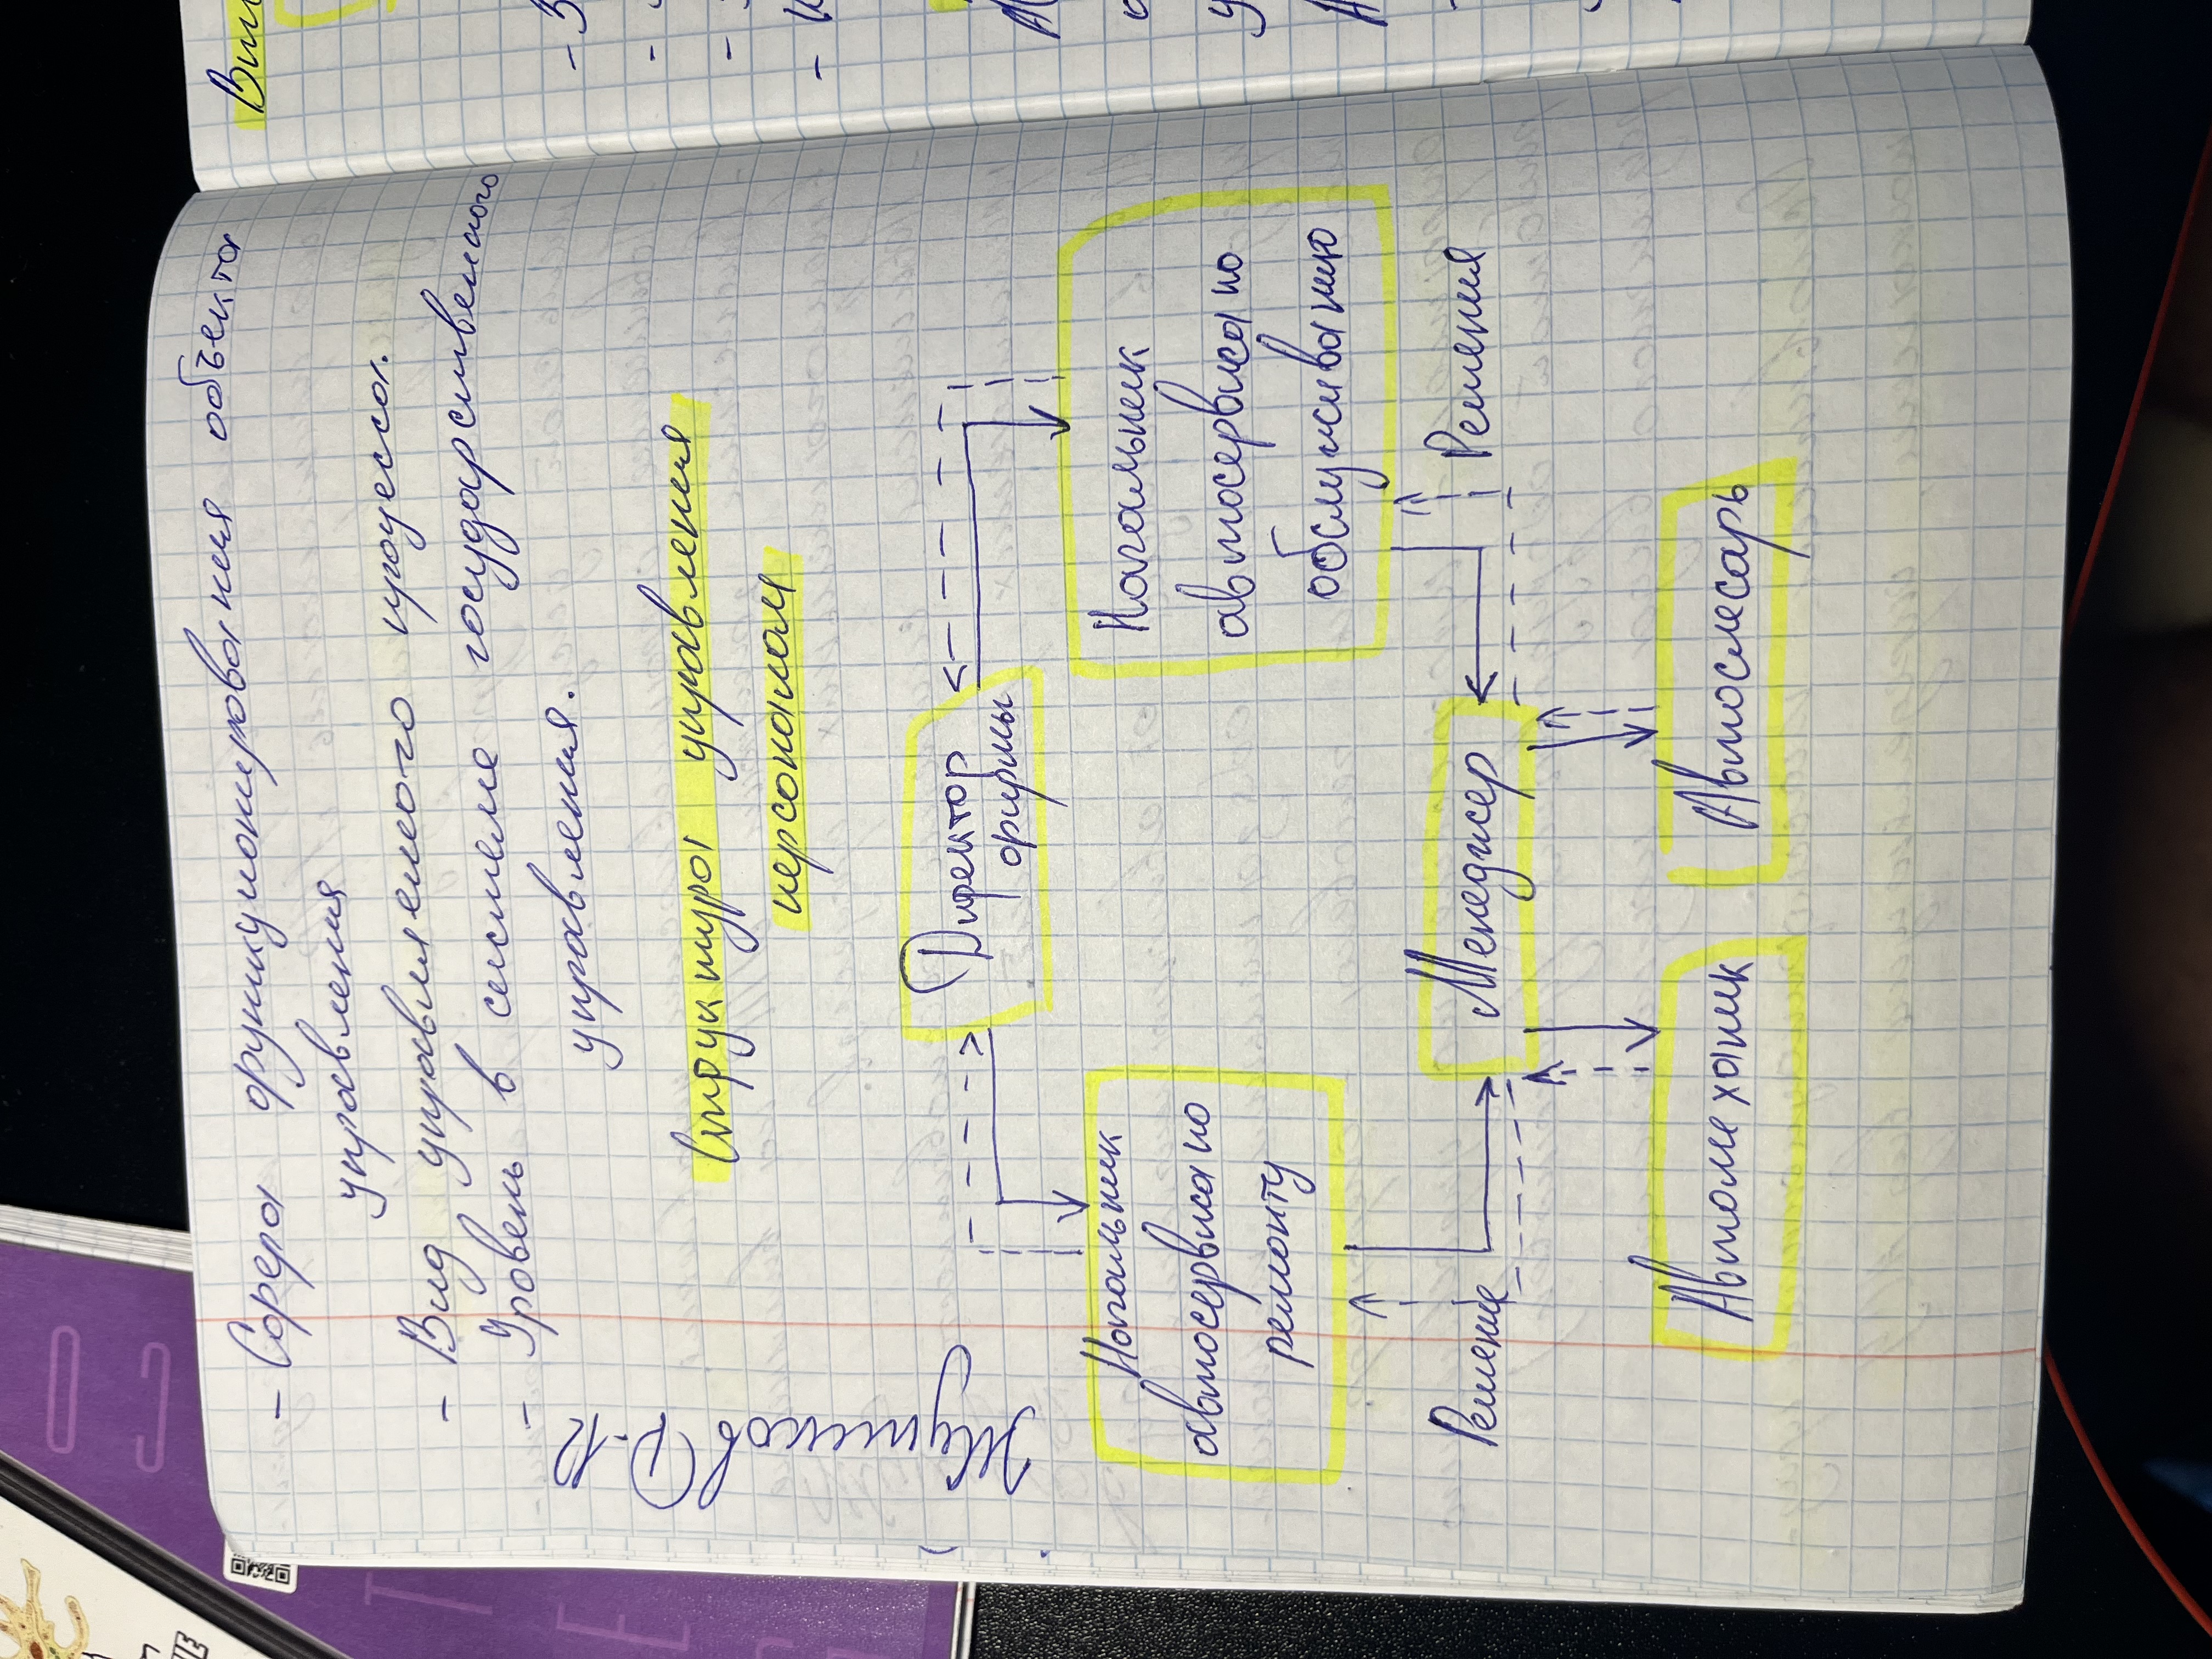 - Сфера функционирования объекта
управления
- Вид управляемого процесса.
- Уровень в системе государственного
управления.
Структура управления
персоналом
Директор
фирмы
Начальник
автосервиса по
ремонту
Начальник
автосервиса по
обслуживанию
Решение
Менеджер
Решения
Автомеханик
Автослесарь